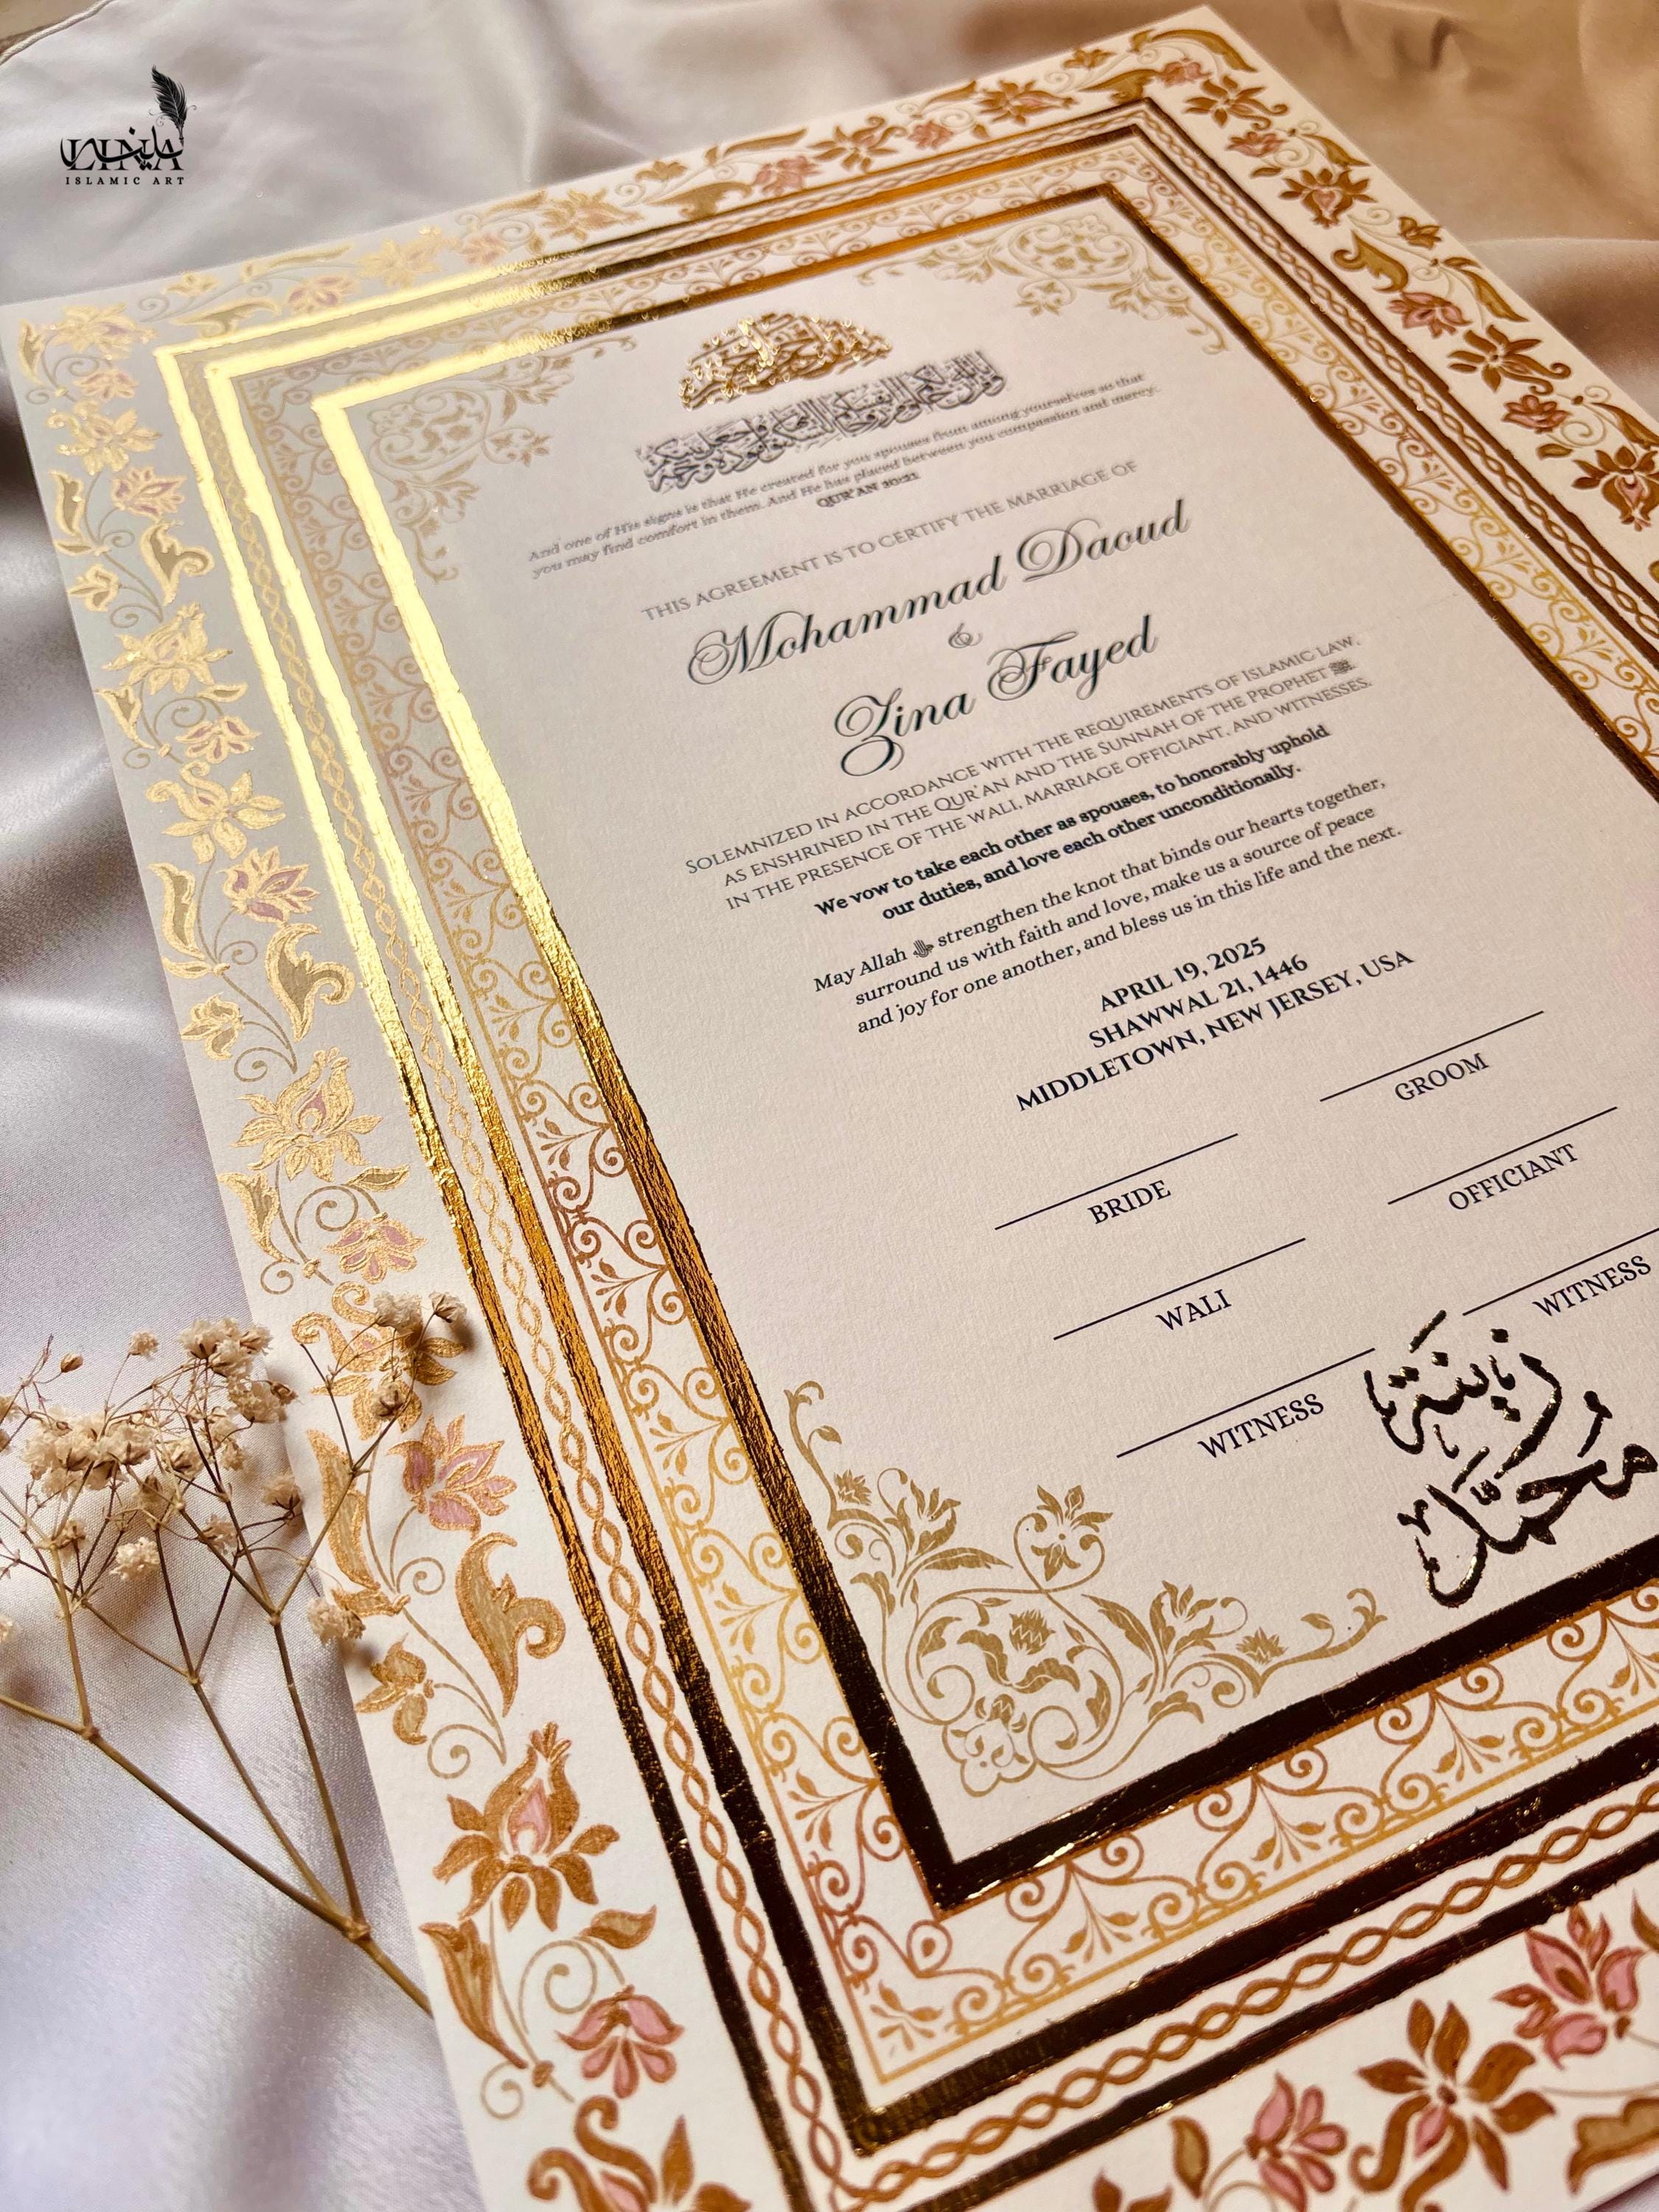 LINA
ISLAMIC ART
And one of His signs is that He created for you spouses from among yourselves so that
you may find comfort in them. And He has placed between you compassion and mercy.
QUR'AN 30:21
THIS AGREEMENT IS TO CERTIFY THE MARRIAGE OF
Mohammad Daoud
&
Zina Fayed
SOLEMNIZED IN ACCORDANCE WITH THE REQUIREMENTS OF ISLAMIC LAW,
AS ENSHRINED IN THE QUR'AN AND THE SUNNAH OF THE PROPHET ﷺ
IN THE PRESENCE OF THE WALI, MARRIAGE OFFICIANT, AND WITNESSES.
We vow to take each other as spouses, to honorably uphold
our duties, and love each other unconditionally.
May Allah ﷻ strengthen the knot that binds our hearts together,
surround us with faith and love, make us a source of peace
and joy for one another, and bless us in this life and the next.
APRIL 19, 2025
SHAWWAL 21, 1446
MIDDLETOWN, NEW JERSEY, USA
GROOM
BRIDE
OFFICIANT
WALI
WITNESS
WITNESS
زينة
محمد